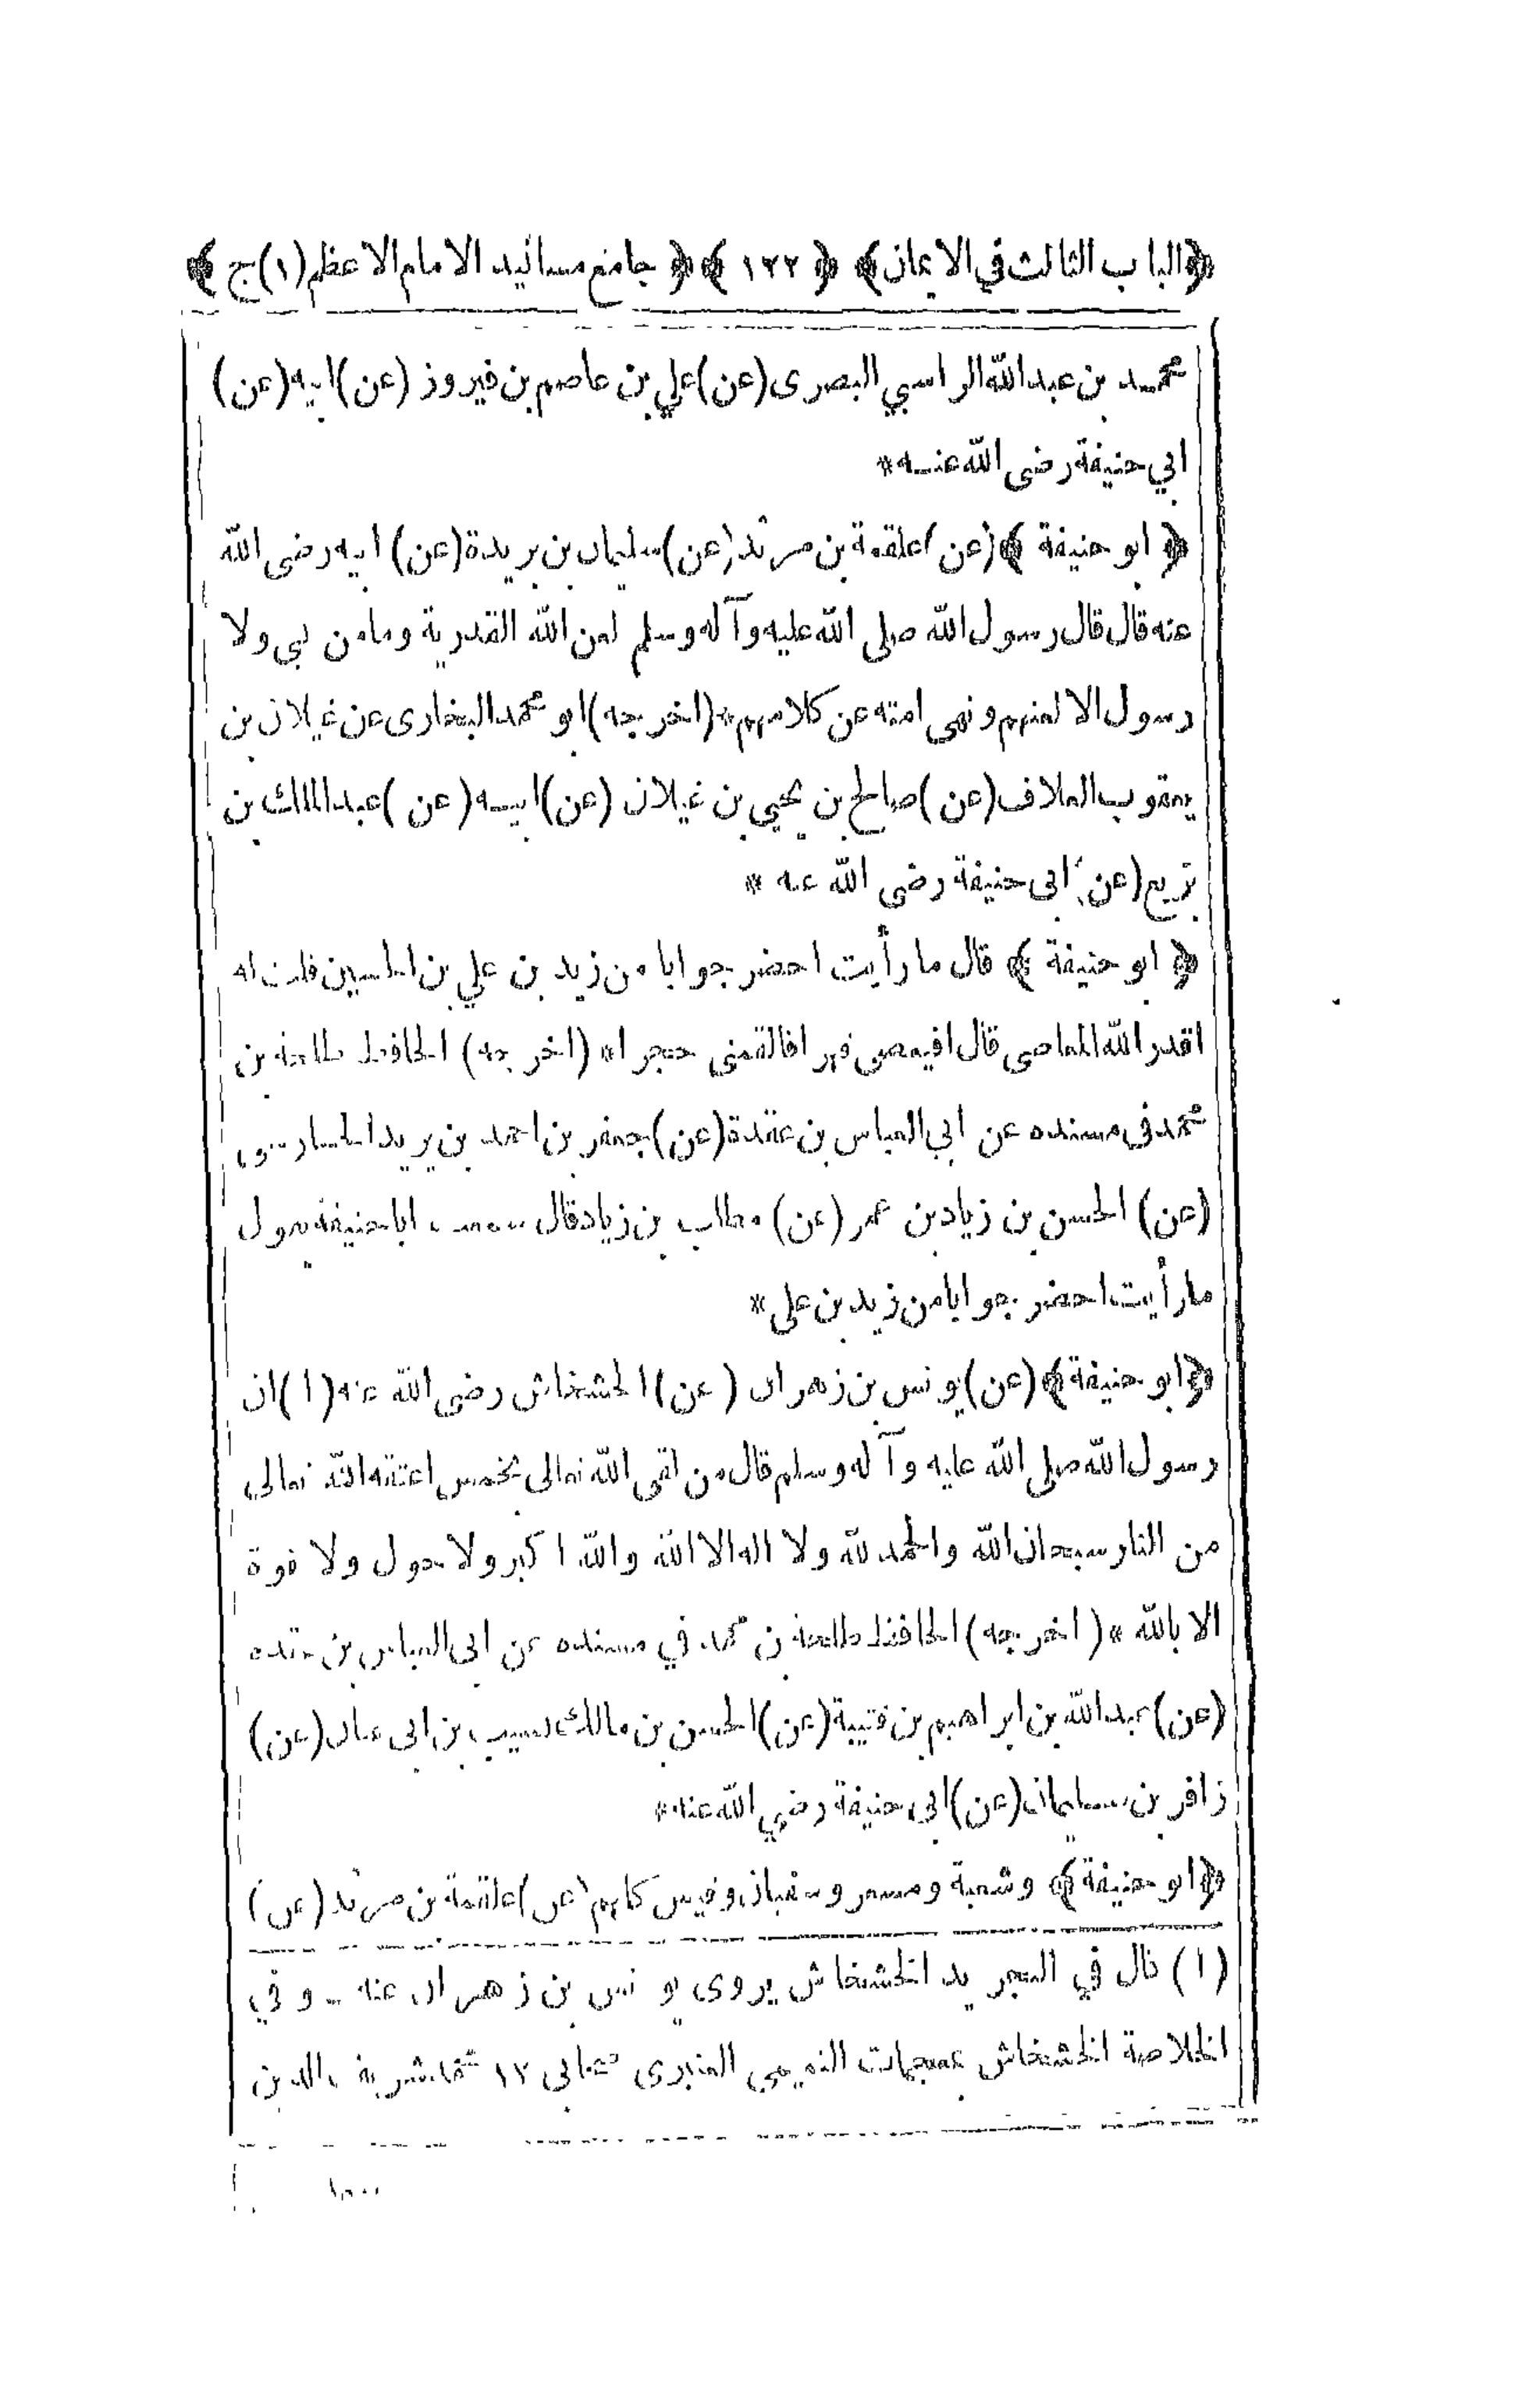 ﴿الباب الثالث في الايمان﴾ ﴿ ١٢٢ ﴾ ﴿ جامع مسانيد الامام الاعظم (١) ج ﴾
محمد بن عبدالله الراسبي البصرى (عن) علي بن عاصم بن فيروز (عن) ابيه (عن)
ابي حنيفة رضى الله عنه *
﴿ ابو حنيفة ﴾ (عن) علقمة بن مرثد (عن) سليمان بن بريدة (عن) ابيه رضى الله
عنه قال قال رسول الله صلى الله عليه وآله وسلم لعن الله القدرية وما من نبي ولا
رسول الا لعنهم ونهى امته عن كلامهم * (اخرجه) ابو محمد البخارى عن غيلان بن
يعقوب العلاف (عن) صالح بن يحيى بن غيلان (عن) ابيه (عن) عبد الملك بن
بزيع (عن) ابى حنيفة رضى الله عنه *
﴿ ابو حنيفة ﴾ قال ما رأيت احضر جوابا من زيد بن علي بن الحسين قلت له
اقدر الله المعاصى قال افيعصى قهرا فالقمنى حجرا * (اخرجه) الحافظ طلحة بن
محمد فى مسنده عن ابي العباس بن عقدة (عن) جعفر بن احمد بن يريد
(عن) الحسن بن زياد بن عمر (عن) مطلب بن زياد قال سمعت ابا حنيفة يقول
ما رأيت احضر جوابا من زيد بن على *
﴿ابو حنيفة﴾ (عن) يونس بن زهران (عن) الخشخاش رضى الله عنه (١) ان
رسول الله صلى الله عليه وآله وسلم قال من لقى الله تعالى بخمس اعتقه الله تعالى
من النار سبحان الله والحمد لله ولا اله الا الله والله اكبر ولا حول ولا قوة
الا بالله * (اخرجه) الحافظ طلحة بن محمد في مسنده عن ابى العباس بن عقدة
(عن) عبدالله بن ابراهيم بن قتيبة (عن) الحسن بن مالك بن ابى (عن)
زافر بن سليمان (عن) ابى حنيفة رضي الله عنه *
﴿ابو حنيفة﴾ وشعبة ومسعر وسفيان وقيس كلهم (عن) علقمة بن مرثد (عن)
(١) قال في التجريد الخشخاش يروى يونس بن زهران عنه - وفي
الخلاصة الخشخاش بمعجمات التميمي العنبرى صحابى ١٢